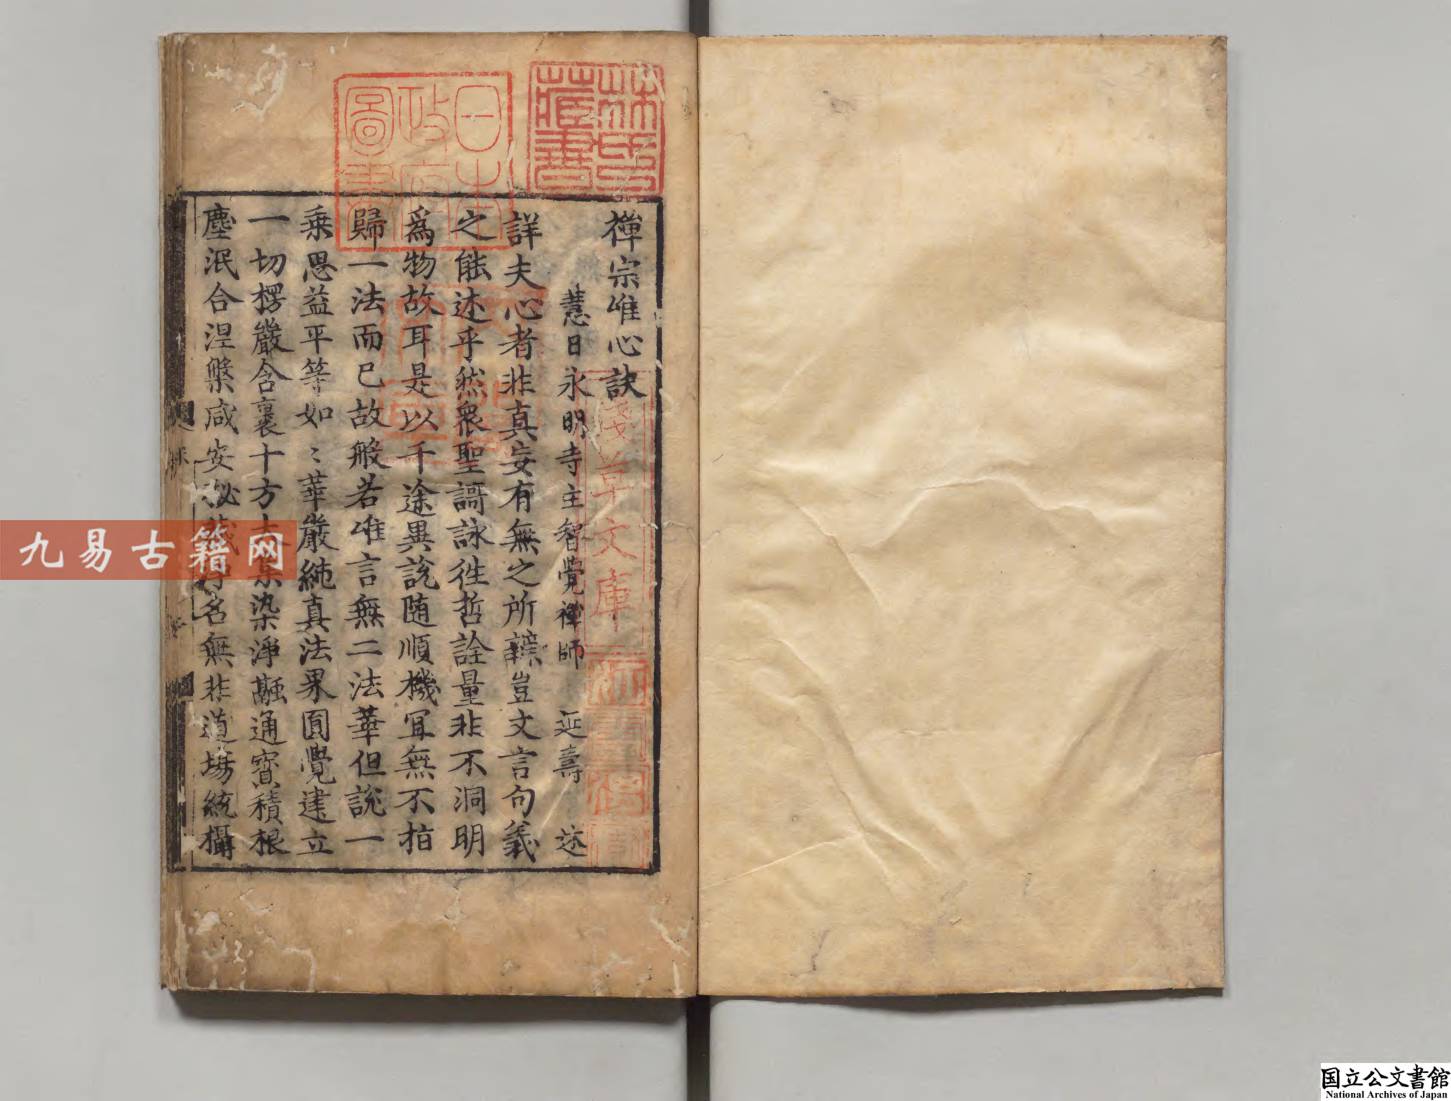 禪宗唯心訣
慧日永明寺主智覺禪師　延壽　述
詳夫心者非真妄有無之所辯豈文言句義
之能述乎然衆聖謌詠徃哲詮量非不洞明
爲物故耳是以千途異說随順機冝無不指
歸一法而已故般若唯言無二法華但說一
乗思益平等如〻華嚴純真法界圓覺建立
一切楞嚴含裹十方大集染淨融通寶積根
塵泯合涅槃咸安秘藏淨名無非道場統攝
日本政府圖書
林氏藏書
淺草文庫
九易古籍网
国立公文書館
National Archives of Japan